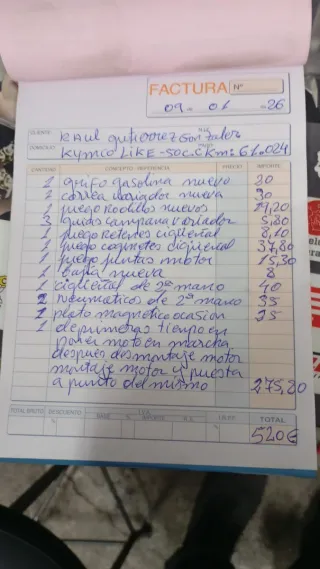 FACTURA Nº
09 - 01 - 26
CLIENTE Raul Gutierrez Gonzalez
DOMICILIO Kymco Like - 50c.c Km: 61.024
CANTIDAD CONCEPTO - REFERENCIA PRECIO IMPORTE
1 grifo gasolina nuevo 20
correa variador nueva 30
1 juego rodillos nuevos 17,20
3 guias campana variador 5,80
1 juego retenes cigueñal 8,10
1 juego cojinetes cigüeñal 37,80
1 juego juntas motor 15,30
1 bujia nueva 8
1 cigüeñal de 2ª mano 40
2 neumaticos de 2ª mano 35
1 plato magnetico ocasion 25
1 de primeras tiempo en
poner moto en marcha,
despues desmontaje motor
montaje motor y puesta
a punto del mismo 275,20
TOTAL BRUTO DESCUENTO BASE I.V.A. % IMPORTE R.E. TOTAL
% 520€